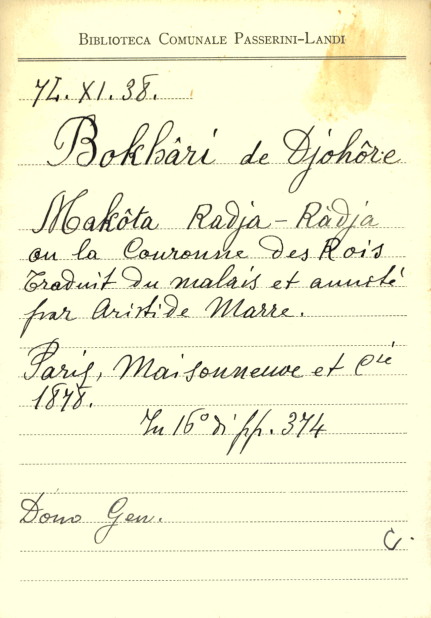 BIBLIOTECA COMUNALE PASSERINI-LANDI
7L.XI.38.
Bokhâri de Djohôre
Makôta Radja-Râdja
ou la Couronne des Rois
Traduit du malais et annoté
par Aristide Marre.
Paris, Maisonneuve et Cie
1878.
In 16° di pp. 374
Dono Gen.
C.